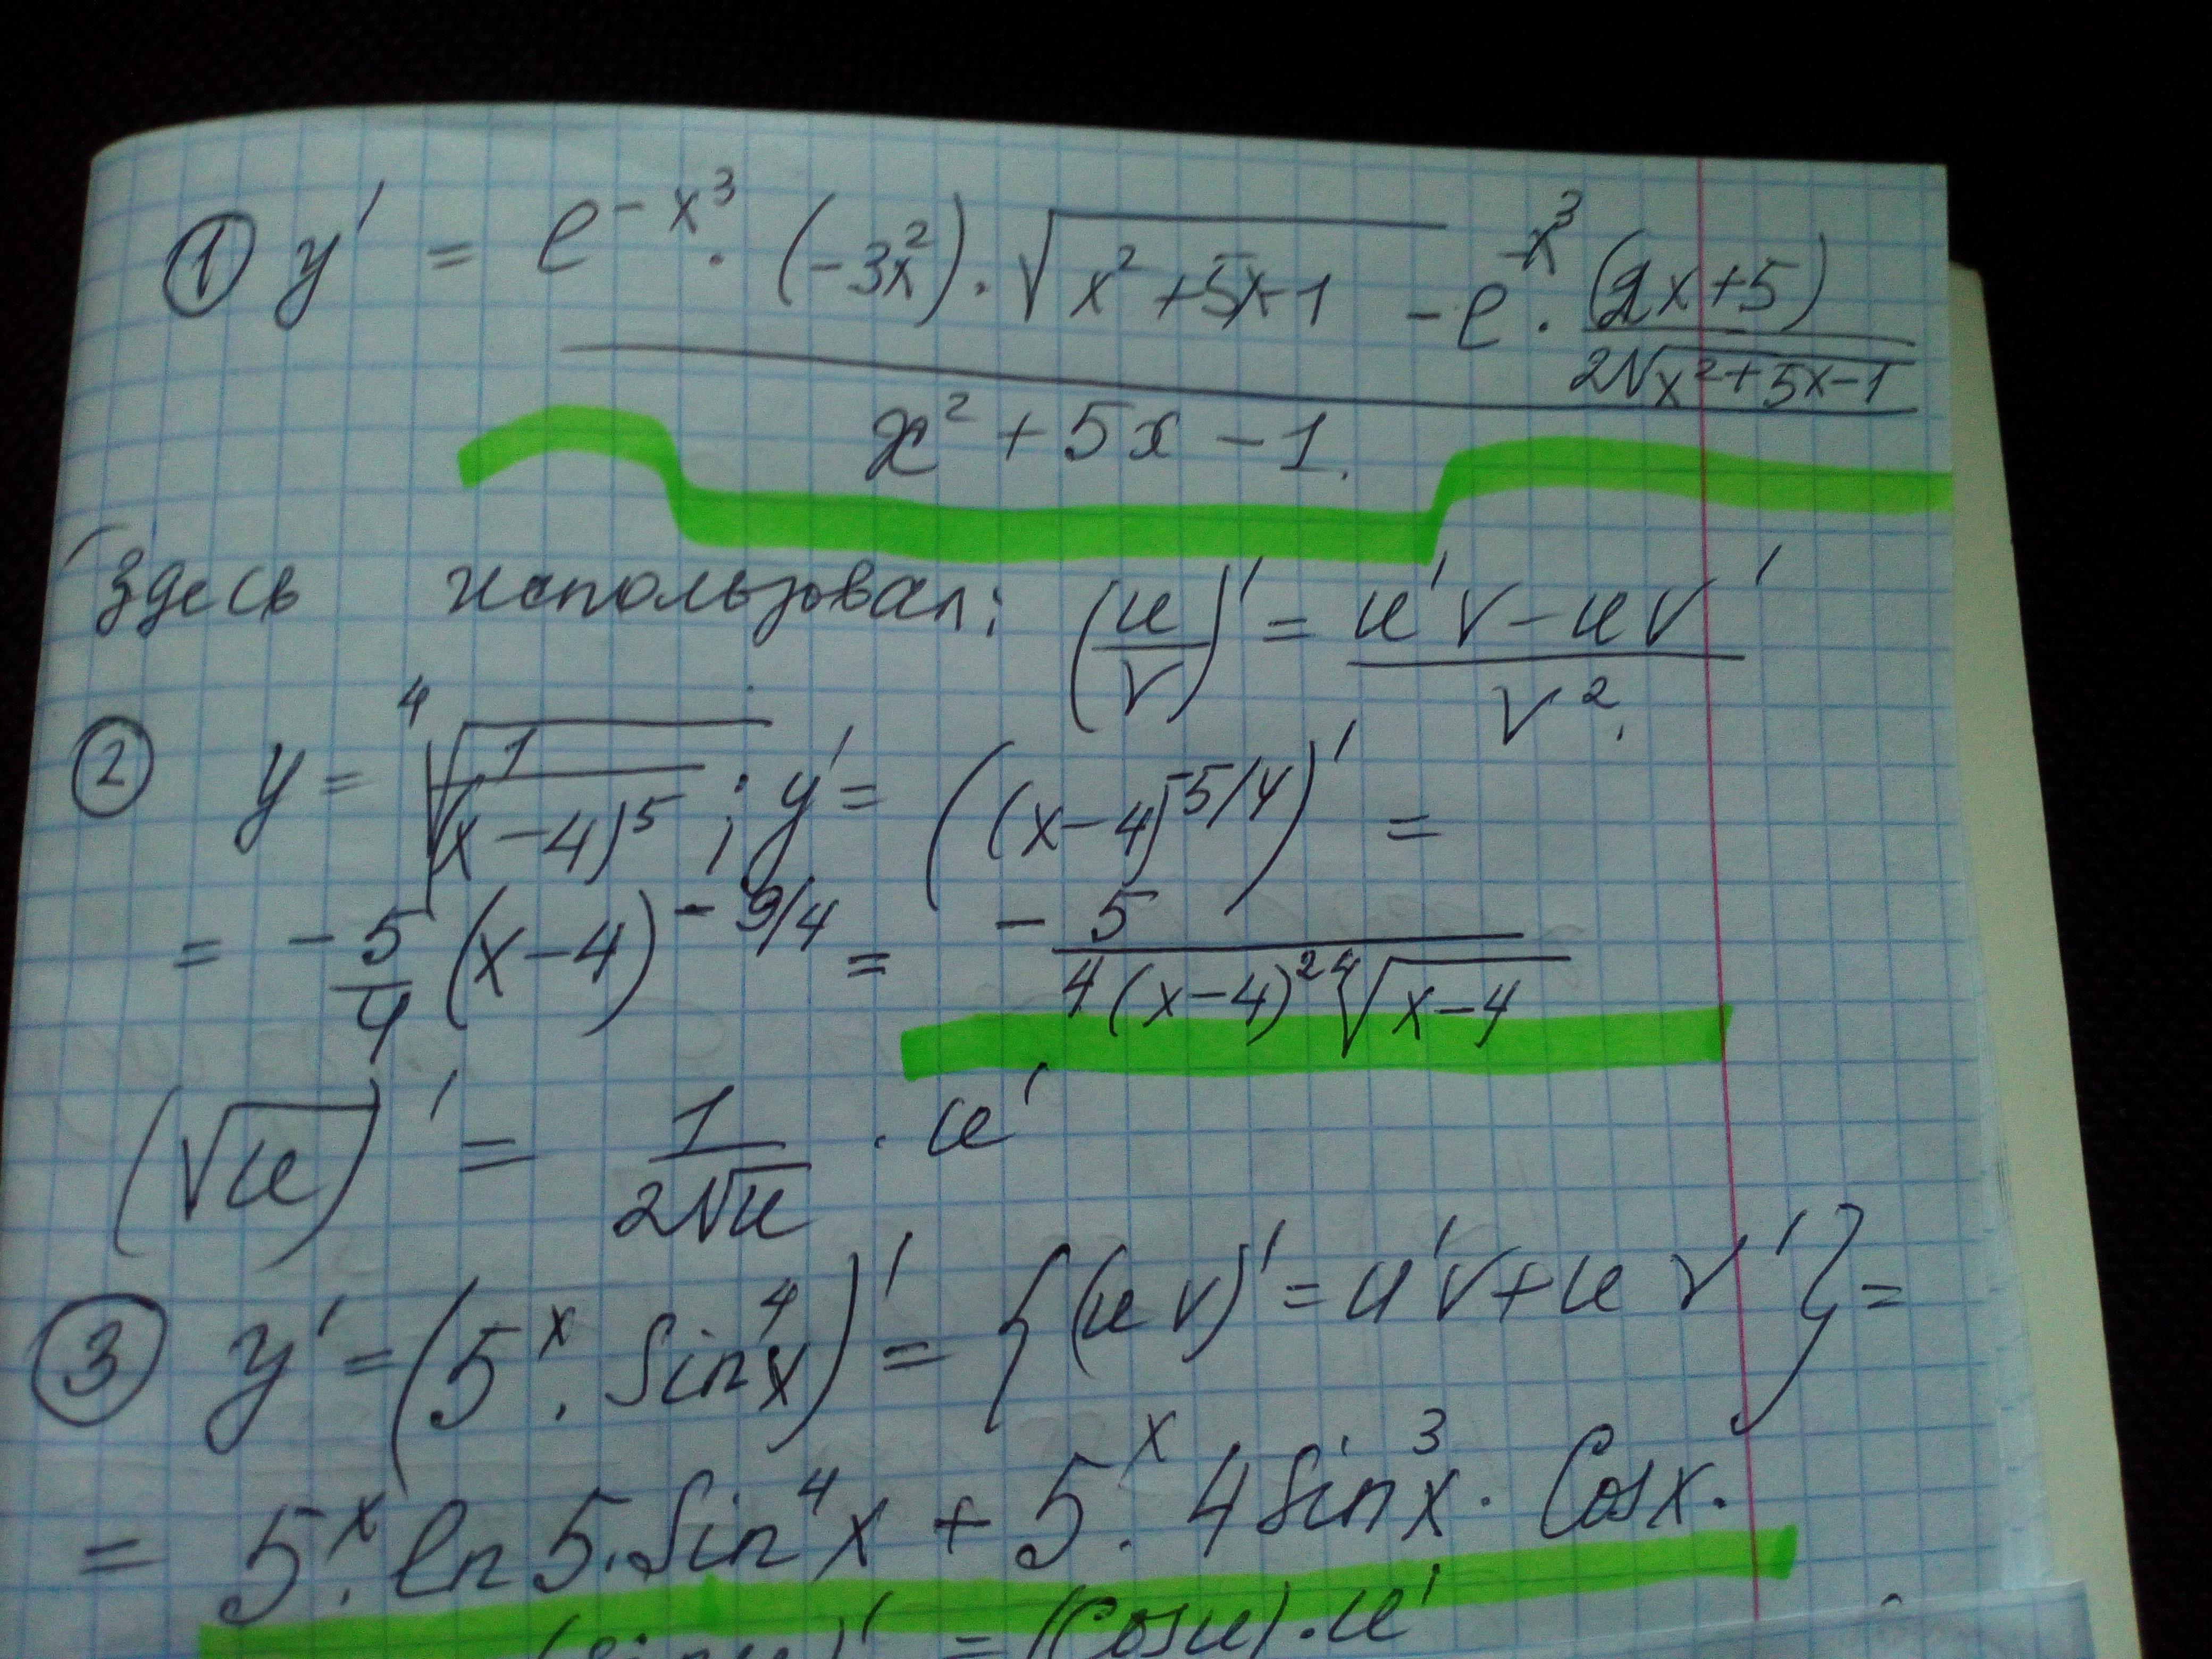 ① y' = (e^(-x³) · (-3x²) · √(x² + 5x - 1) - e^(-x³) · (2x + 5)/(2√(x² + 5x - 1))) / (x² + 5x - 1).
Здесь использовал: (u/v)' = (u'v - uv')/v².
② y = ⁴√(1/(x - 4)⁵) ; y' = ((x - 4)^(-5/4))' =
= -5/4 (x - 4)^(-9/4) = -5/(4(x - 4)² ⁴√(x - 4))
(√u)' = 1/(2√u) · u'
③ y' = (5^x · sin⁴x)' = {(uv)' = u'v + uv'} =
= 5^x · ln5 · sin⁴x + 5^x · 4sin³x · Cosx.
(sinu)' = (Cosu) · u'